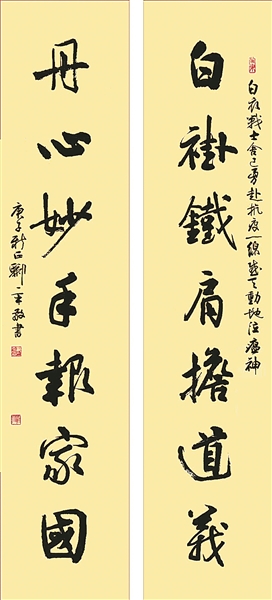 白衣戰士舍己勇赴抗疫一線感天動地泣瘟神
白褂鐵肩擔道義
丹心妙手報家國
庚子新正 敬書